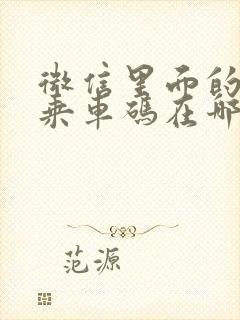 微信里面的
乘车码在哪
范源